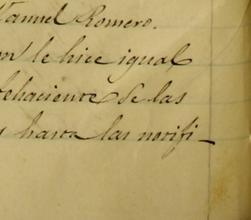 Manuel Romero.
le hice igual
fehaciente de las
hasta las notifi-